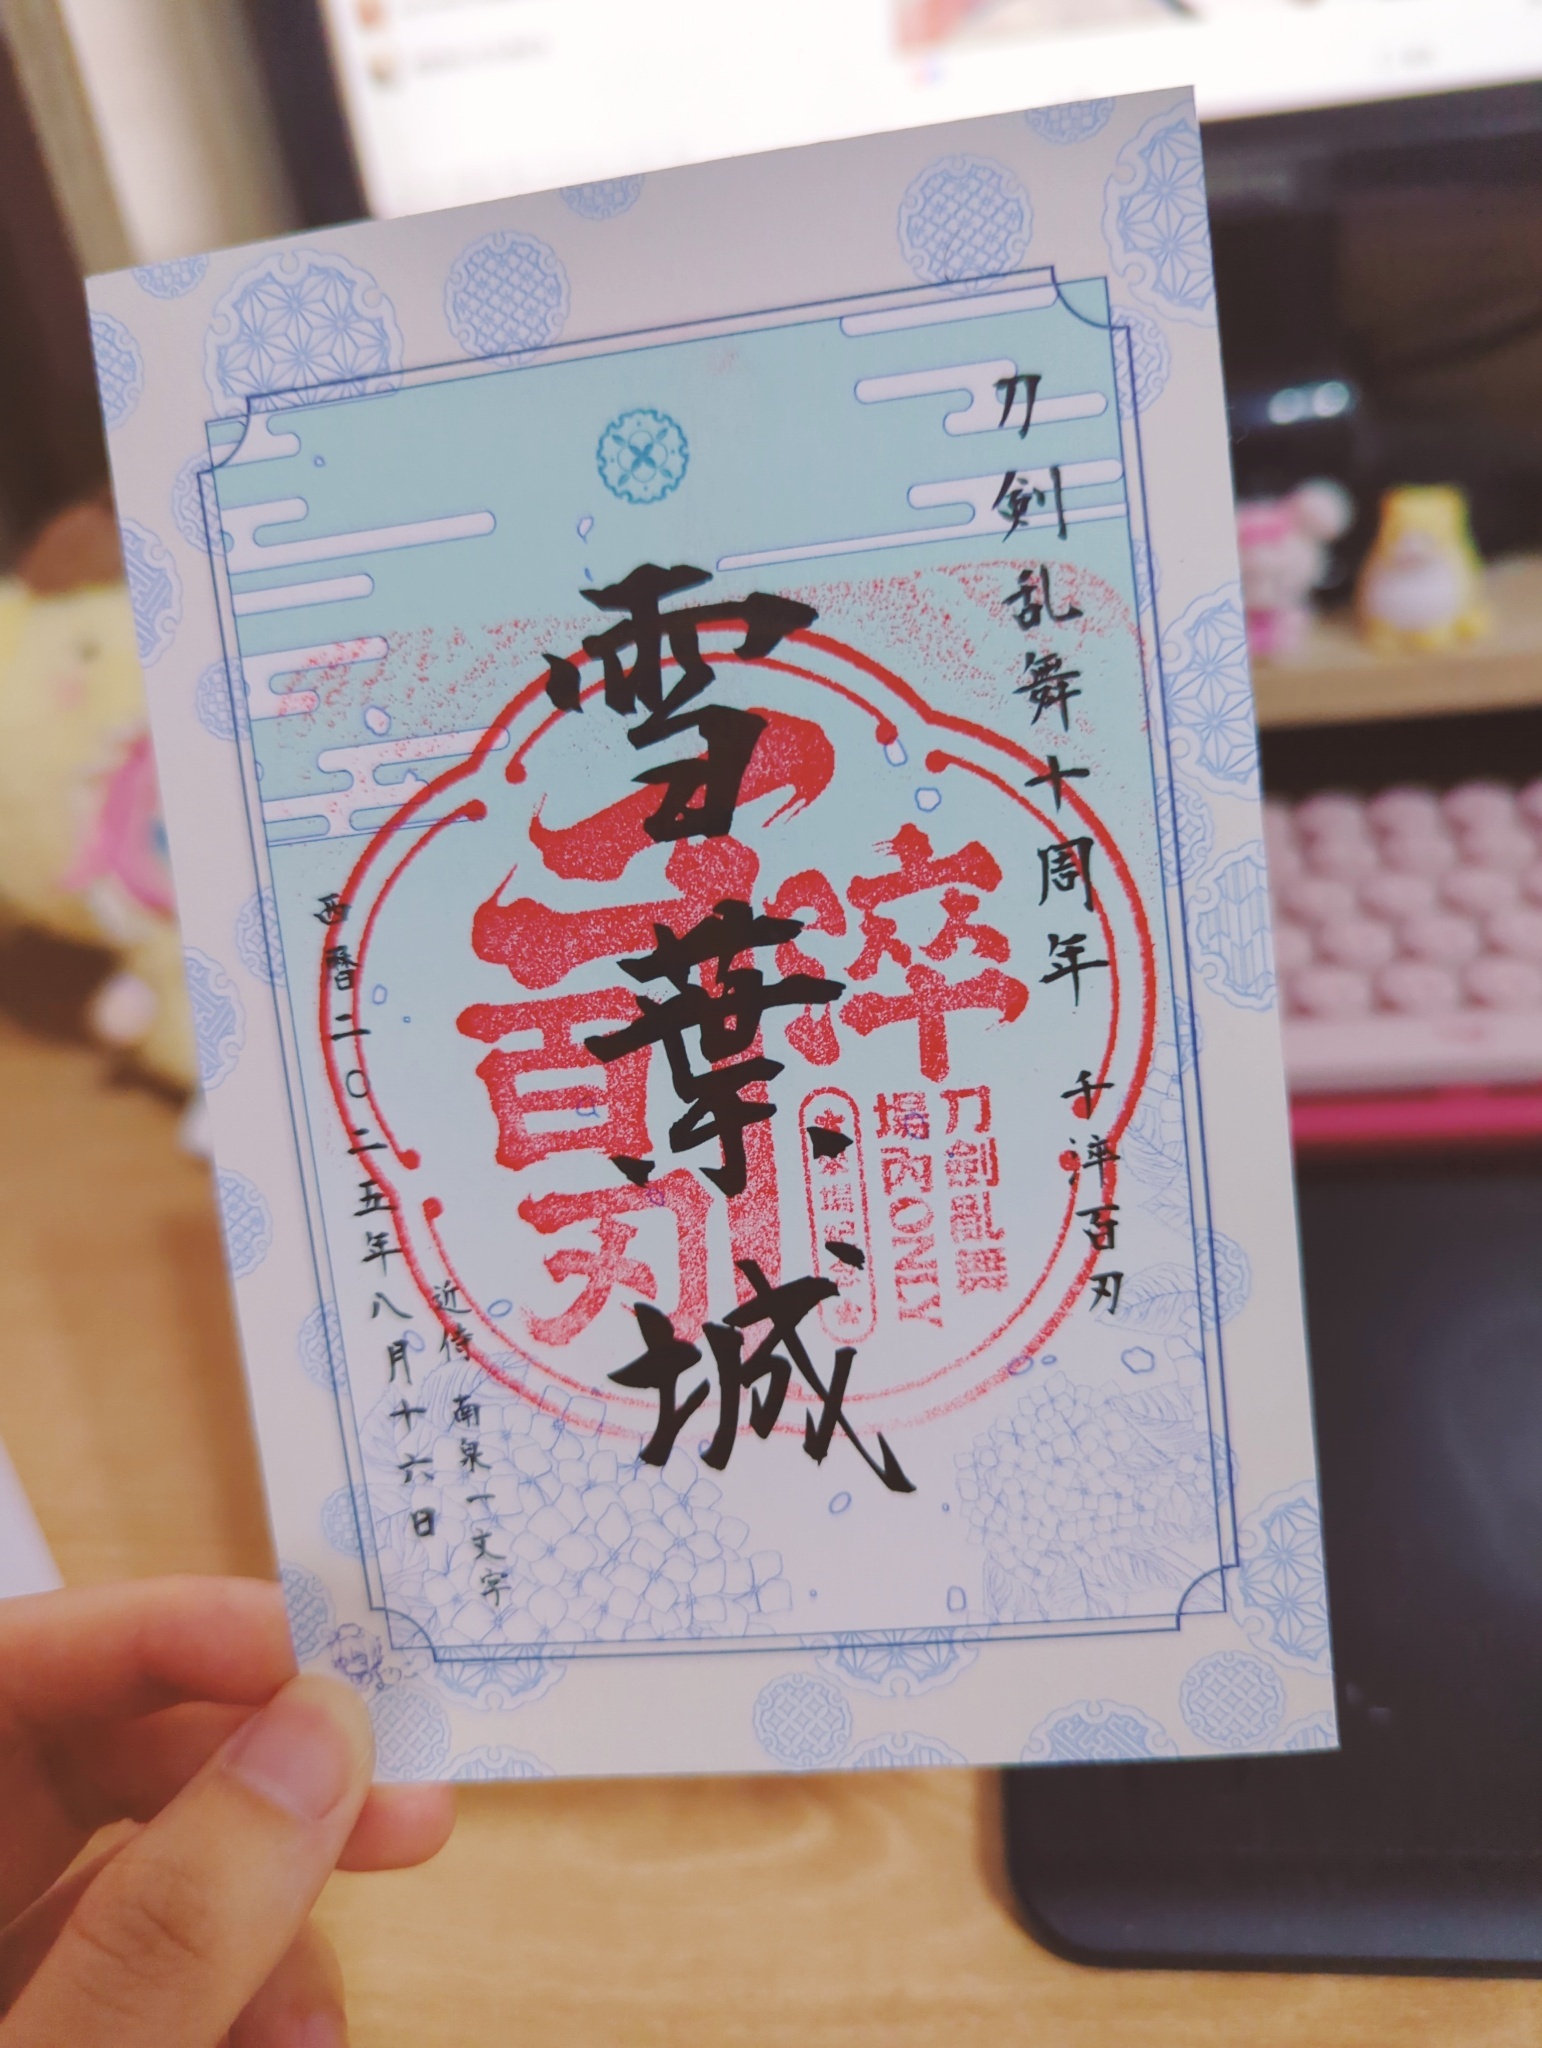 刀剣乱舞十周年 千淬百刃
雪葉、城
千淬
百刃
刀剣乱舞
場次ONLY
近侍 南泉一文字
西暦二〇二五年八月十六日